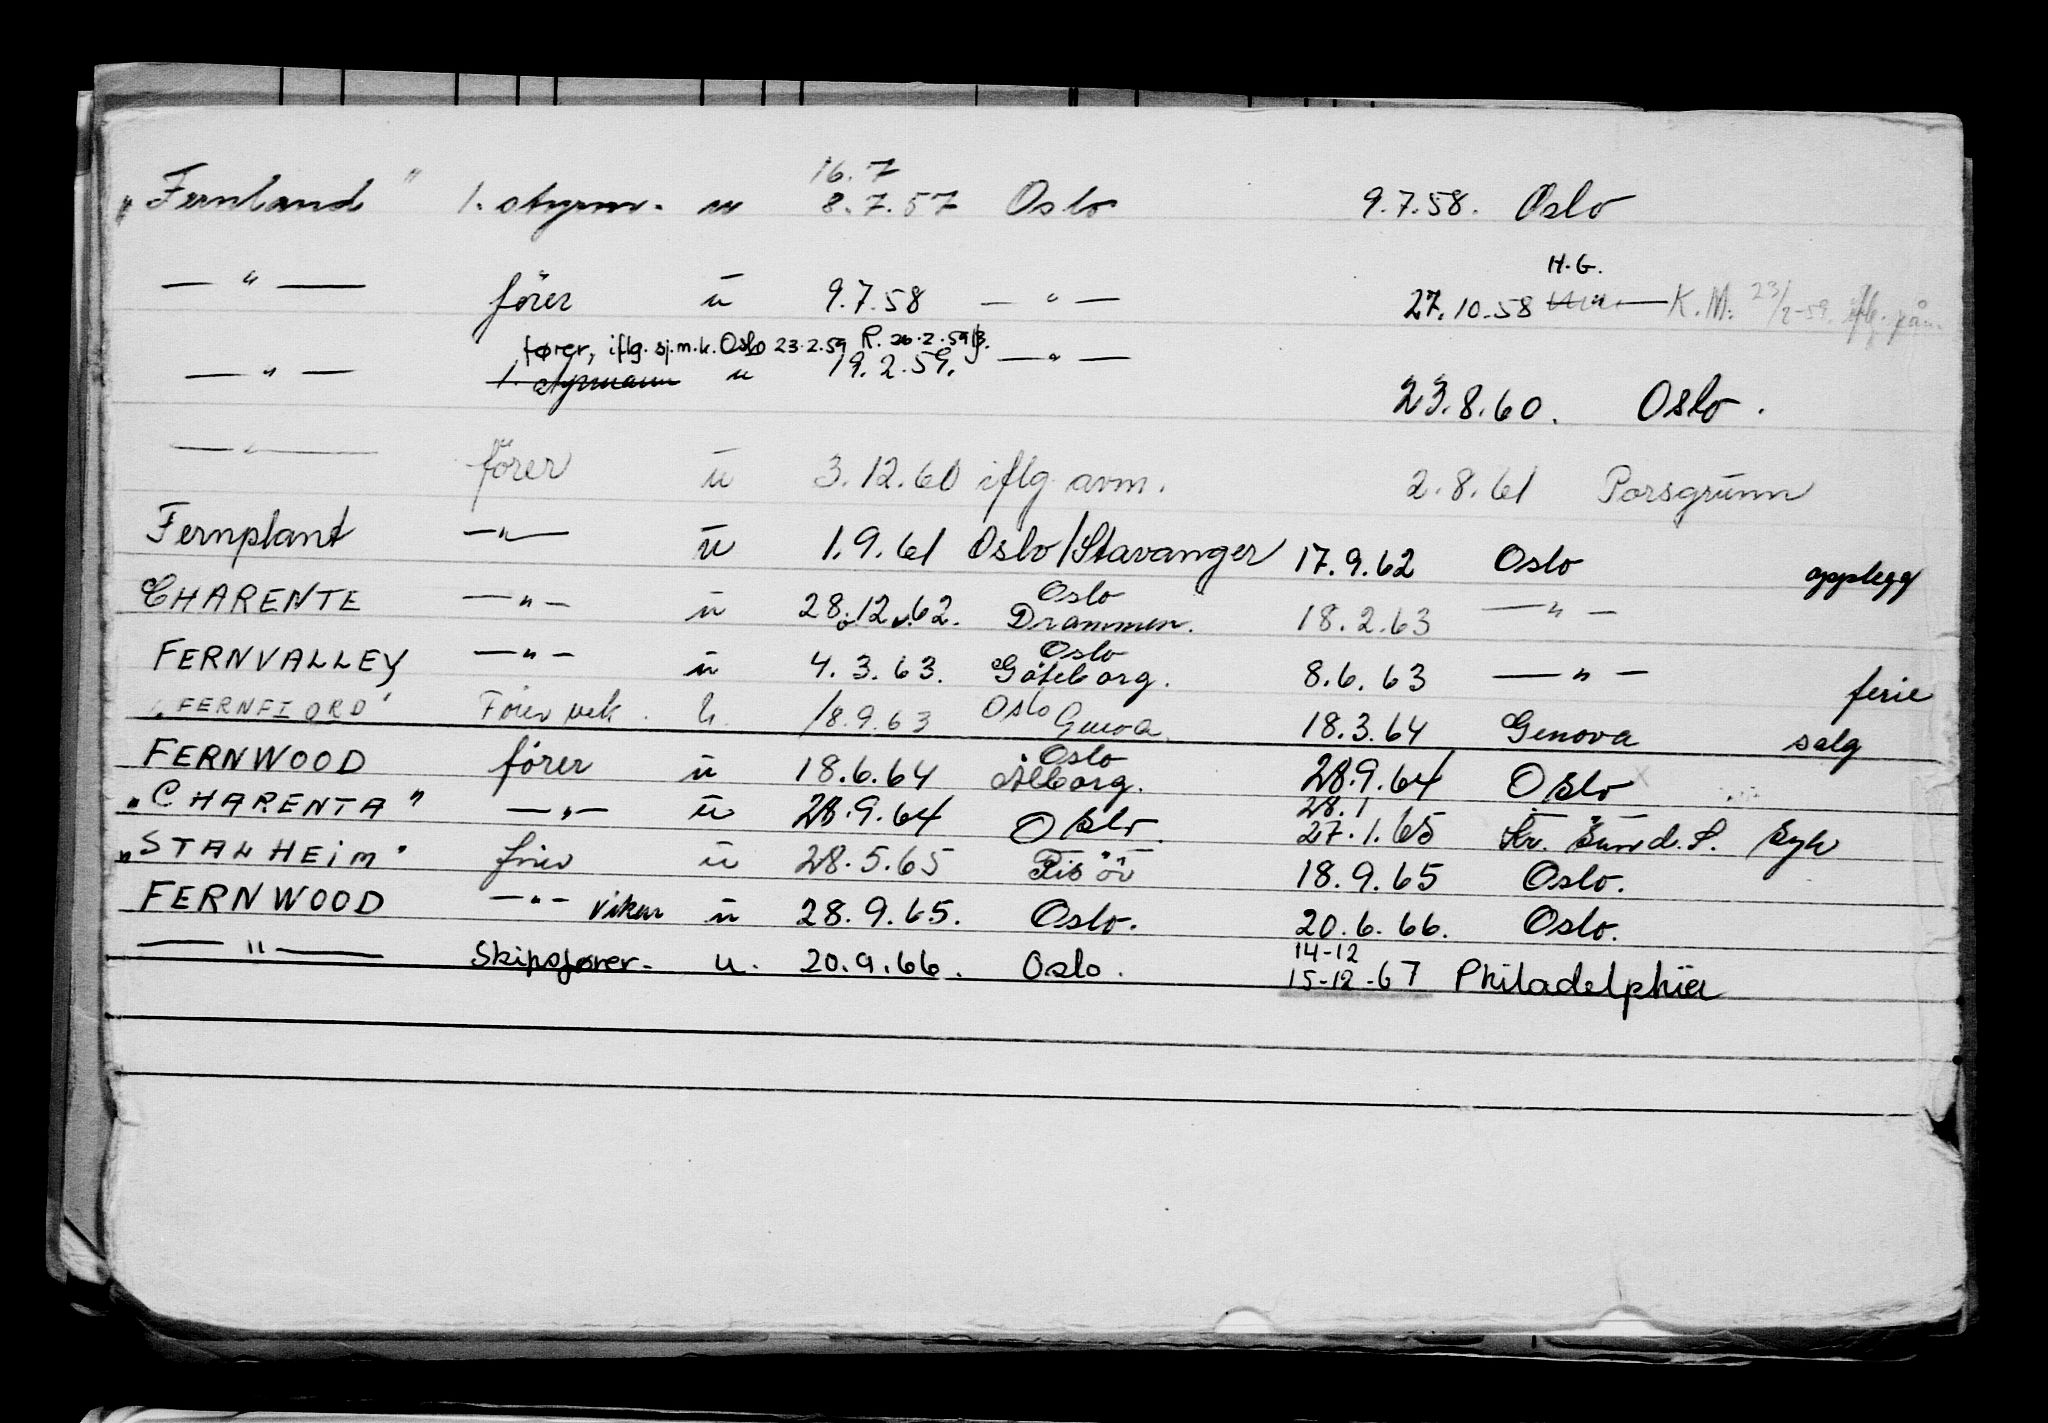 16.7
"Fernland" 1. styrm. u 8.7.57 Oslo 9.7.58. Oslo
H.G.
— " — förer u 9.7.58 — " — 27.10.58 — " — K.M. 23/2-59. iflg.
fører, iflg. sj.m.k. Oslo 23.2.59 R. 26.2.59
— " — 1. styrmann u 19.2.59. — " — 23.8.60. Oslo.
— " — förer u 3.12.60 iflg avm. 2.8.61 Porsgrunn
Fernplant — " — u 1.9.61 Oslo/Stavanger 17.9.62 Oslo opplegg
Oslo
CHARENTE — " — u 28.12.62. Drammen. 18.2.63 — " —
Oslo
FERNVALLEY — " — u 4.3.63. Göteborg. 8.6.63 — " — ferie
"FERNFIORD" Förer vik. u. 18.9.63 Oslo Genova 18.3.64 Genova salg
Oslo
FERNWOOD förer u 18.6.64 Ålborg. 28.9.64 Oslo
28.1
"CHARENTA" — " — u 28.9.64 Oslo 27.1.65 Kr. Sund. S. Syk
"STALHEIM" förer u 28.5.65 18.9.65 Oslo.
FERNWOOD — " — vikar u 28.9.65. Oslo. 20.6.66. Oslo.
14-12
— " — Skipsfører- u. 20.9.66. Oslo. 15-12-67 Philadelphia